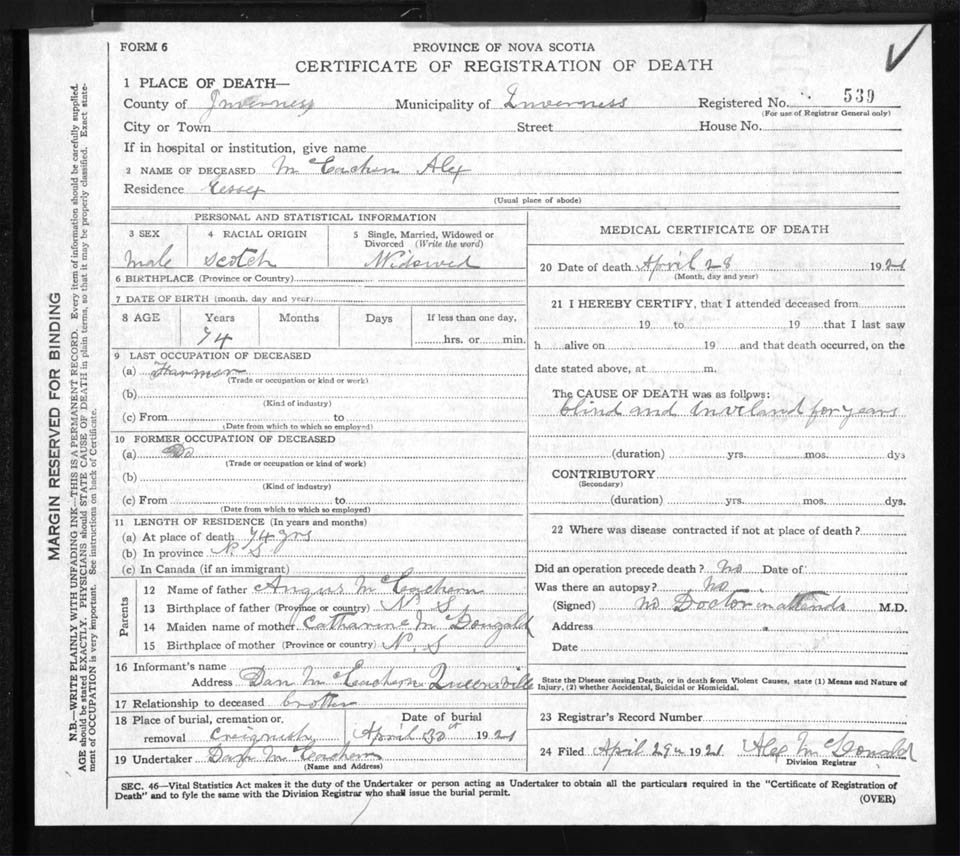 FORM 6
PROVINCE OF NOVA SCOTIA
CERTIFICATE OF REGISTRATION OF DEATH
1 PLACE OF DEATH—
County of Inverness Municipality of Inverness Registered No. 539
(For use of Registrar General only)
City or Town Street House No.
If in hospital or institution, give name
2 NAME OF DECEASED McEachern Alex
Residence
(Usual place of abode)
PERSONAL AND STATISTICAL INFORMATION
3 SEX 4 RACIAL ORIGIN 5 Single, Married, Widowed or
Divorced (Write the word)
male Scotch Widowed
6 BIRTHPLACE (Province or Country)
7 DATE OF BIRTH (month, day and year)
8 AGE Years Months Days If less than one day,
74 hrs. or min.
9 LAST OCCUPATION OF DECEASED
(a) Farmer
(Trade or occupation or kind or work)
(b)
(Kind of industry)
(c) From to
(Date from which to which so employed)
10 FORMER OCCUPATION OF DECEASED
(a) Do
(Trade or occupation or kind of work)
(b)
(Kind of industry)
(c) From to
(Date of which to which so employed)
11 LENGTH OF RESIDENCE (In years and months)
(a) At place of death 74 yrs
(b) In province N S
(c) In Canada (if an immigrant)
Parents
12 Name of father Angus McEachern
13 Birthplace of father (Province or country) N. S
14 Maiden name of mother Catharine McDougald
15 Birthplace of mother (Province or country) N. S
16 Informant's name
Address Dan McEachern Queensville
17 Relationship to deceased brother
18 Place of burial, cremation or, Date of burial
removal Creignish April 30th 1921
19 Undertaker Dan McEachern
(Name and Address)
MEDICAL CERTIFICATE OF DEATH
20 Date of death April 28 1921
(Month, day and year)
21 I HEREBY CERTIFY, that I attended deceased from
19 to 19 that I last saw
h alive on 19 and that death occurred, on the
date stated above, at m.
The CAUSE OF DEATH was as follows:
blind and for years
(duration) yrs. mos. dys
CONTRIBUTORY
(Secondary)
(duration) yrs. mos. dys.
22 Where was disease contracted if not at place of death?
Did an operation precede death? no Date of
Was there an autopsy? no
(Signed) no Doctor in attends M.D.
Address
Date
State the Disease causing Death, or in death from Violent Causes, state (1) Means and Nature of
Injury, (2) whether Accidental, Suicidal or Homicidal.
23 Registrar's Record Number
24 Filed April 29th 1921 Alex McDonald
Division Registrar
SEC. 46—Vital Statistics Act makes it the duty of the Undertaker or person acting as Undertaker to obtain all the particulars required in the "Certificate of Registration of
Death" and to fyle the same with the Division Registrar who shall issue the burial permit.
(OVER)
MARGIN RESERVED FOR BINDING
N.B.—WRITE PLAINLY WITH UNFADING INK—THIS IS A PERMANENT RECORD. Every item of information should be carefully supplied.
AGE should be stated EXACTLY. PHYSICIANS should STATE CAUSE OF DEATH in plain terms, so that it may be properly classified. Exact state-
ment of OCCUPATION is very important. See instructions on back of Certificate.